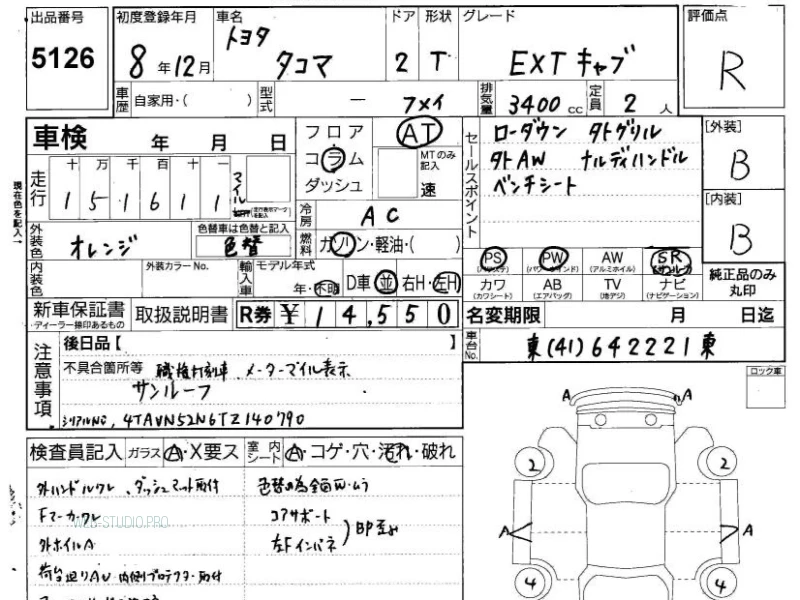 出品番号 初度登録年月 車名 ドア 形状 グレード 評価点
5126 8年12月 トヨタ タコマ 2 T EXTキャブ R
車歴 自家用・( ) 型式 ー フメイ 排気量 3400cc 定員 2人
車検 年 月 日 フロア AT セールスポイント ローダウン 外グリル [外装]
コラム MTのみ記入 外AW ナルディハンドル B
走行 十 万 千 百 十 一 マイル ダッシュ 速 ベンチシート [内装]
151611 冷房 AC B
現在色を記入→
外装色 オレンジ 色替車は色替と記入 色替 燃料 ガソリン・軽油・( ) PS PW AW SR
(パワステ) (パワーウインド) (アルミホイル) (サンルーフ) 純正品のみ丸印
内装色 外装カラーNo. 輸入車 モデル年式 年・不明 D車 並 右H・左H カワ AB TV ナビ
(カワシート) (エアバッグ) (地デジ) (ナビゲーション)
新車保証書 取扱説明書 R券 ¥14,550 名変期限 月 日迄
ディーラー捺印あるもの
車台No. 東(41)642221東
注意事項 後日品【 】 ロック車
不具合箇所等 職権打刻車、メーターマイル表示
サンルーフ
シリアルNo, 4TAVN52N6TZ140790
A A
検査員記入 ガラス A・X要ス 室内シート A・コゲ・穴・汚れ・破れ
外ハンドルクレ、ダッシュマット取付 2 2
Fマーカークレ コアサポート
WEB-STUDIO.PRO
外ホイルA 左Fインパネ BP A A
4 4